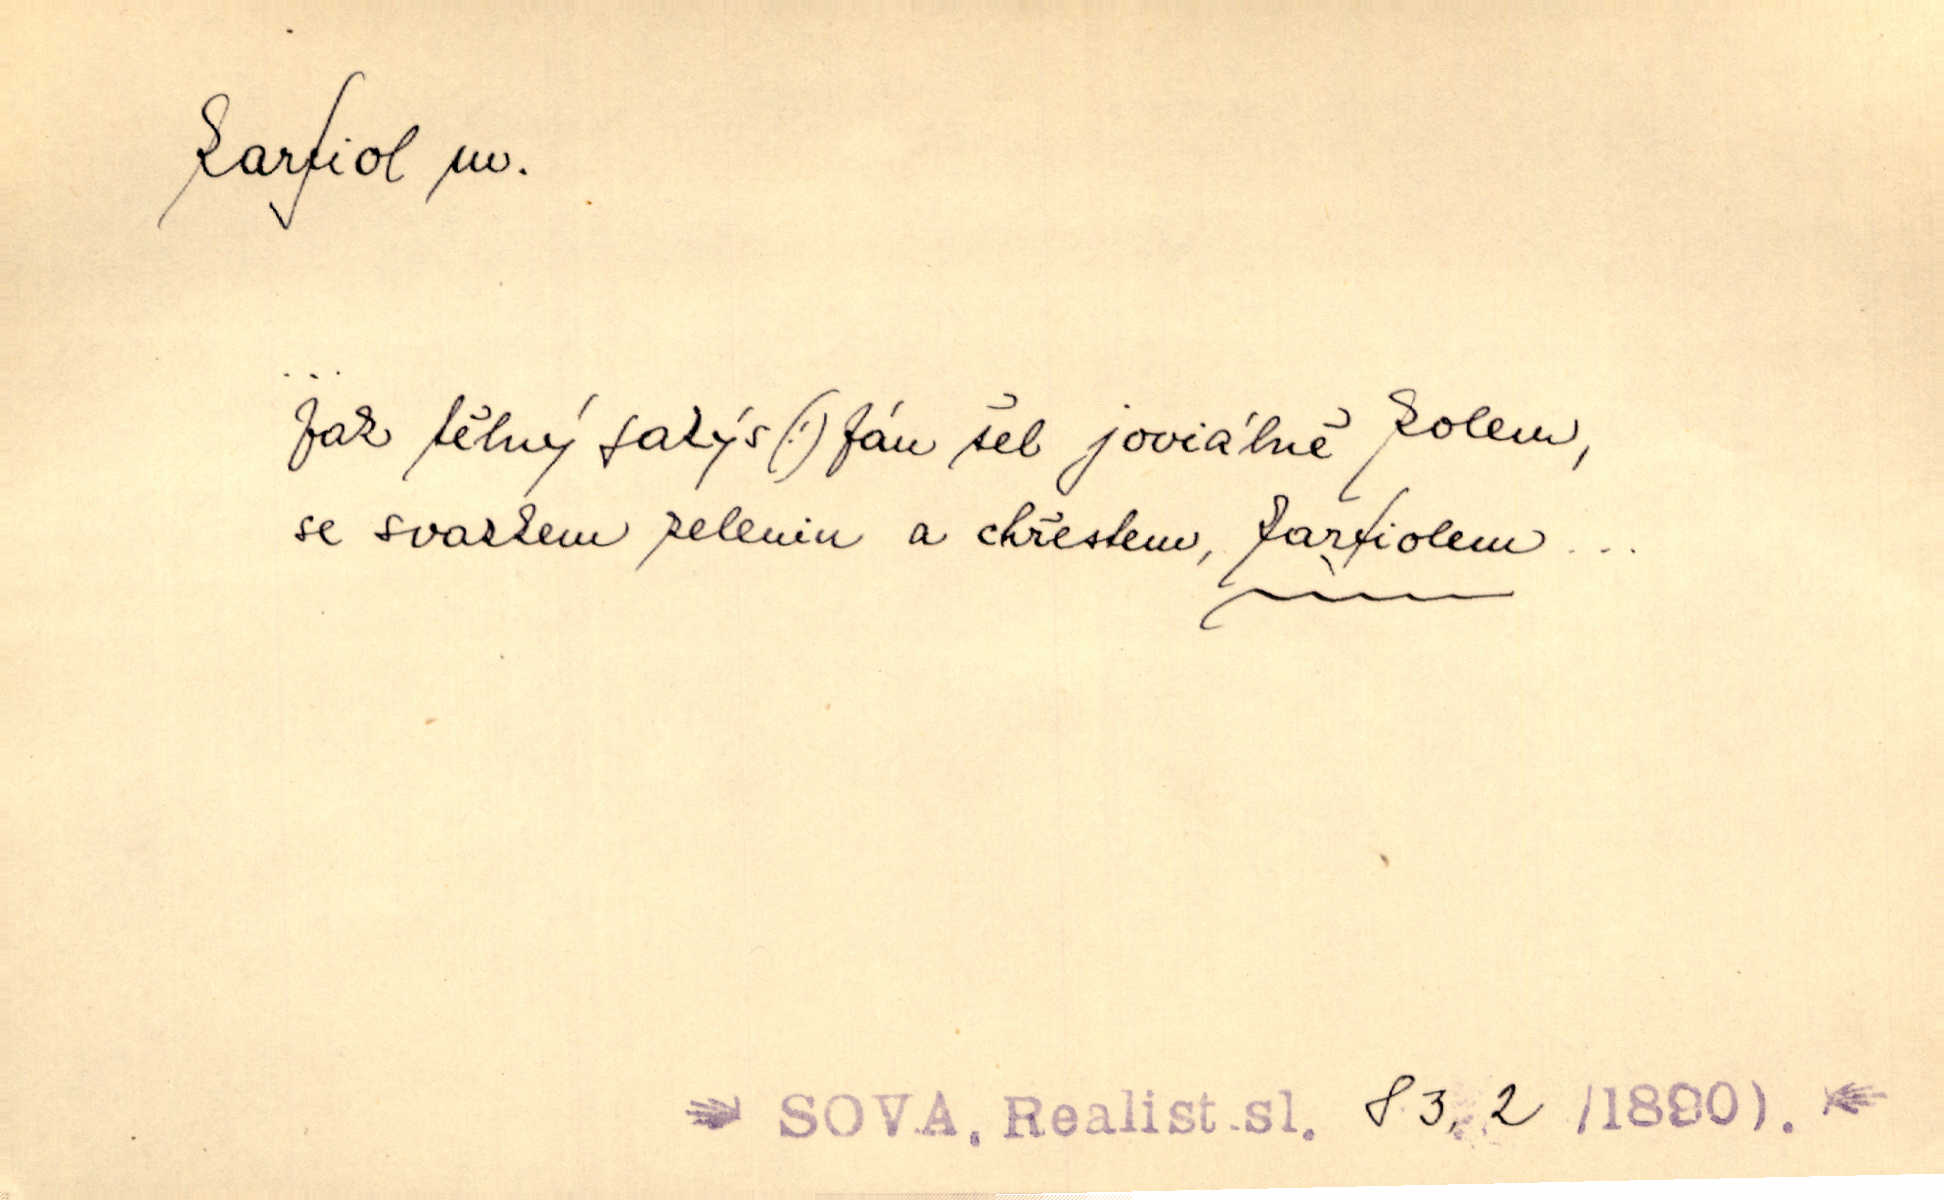 karfiol m.
...
Jak tělný satýs(!) Ján šel joviálně kolem,
se svazkem zelenin a chřestem, karfiolem ...
SOVA, Realist.sl. 83,2 /1890).